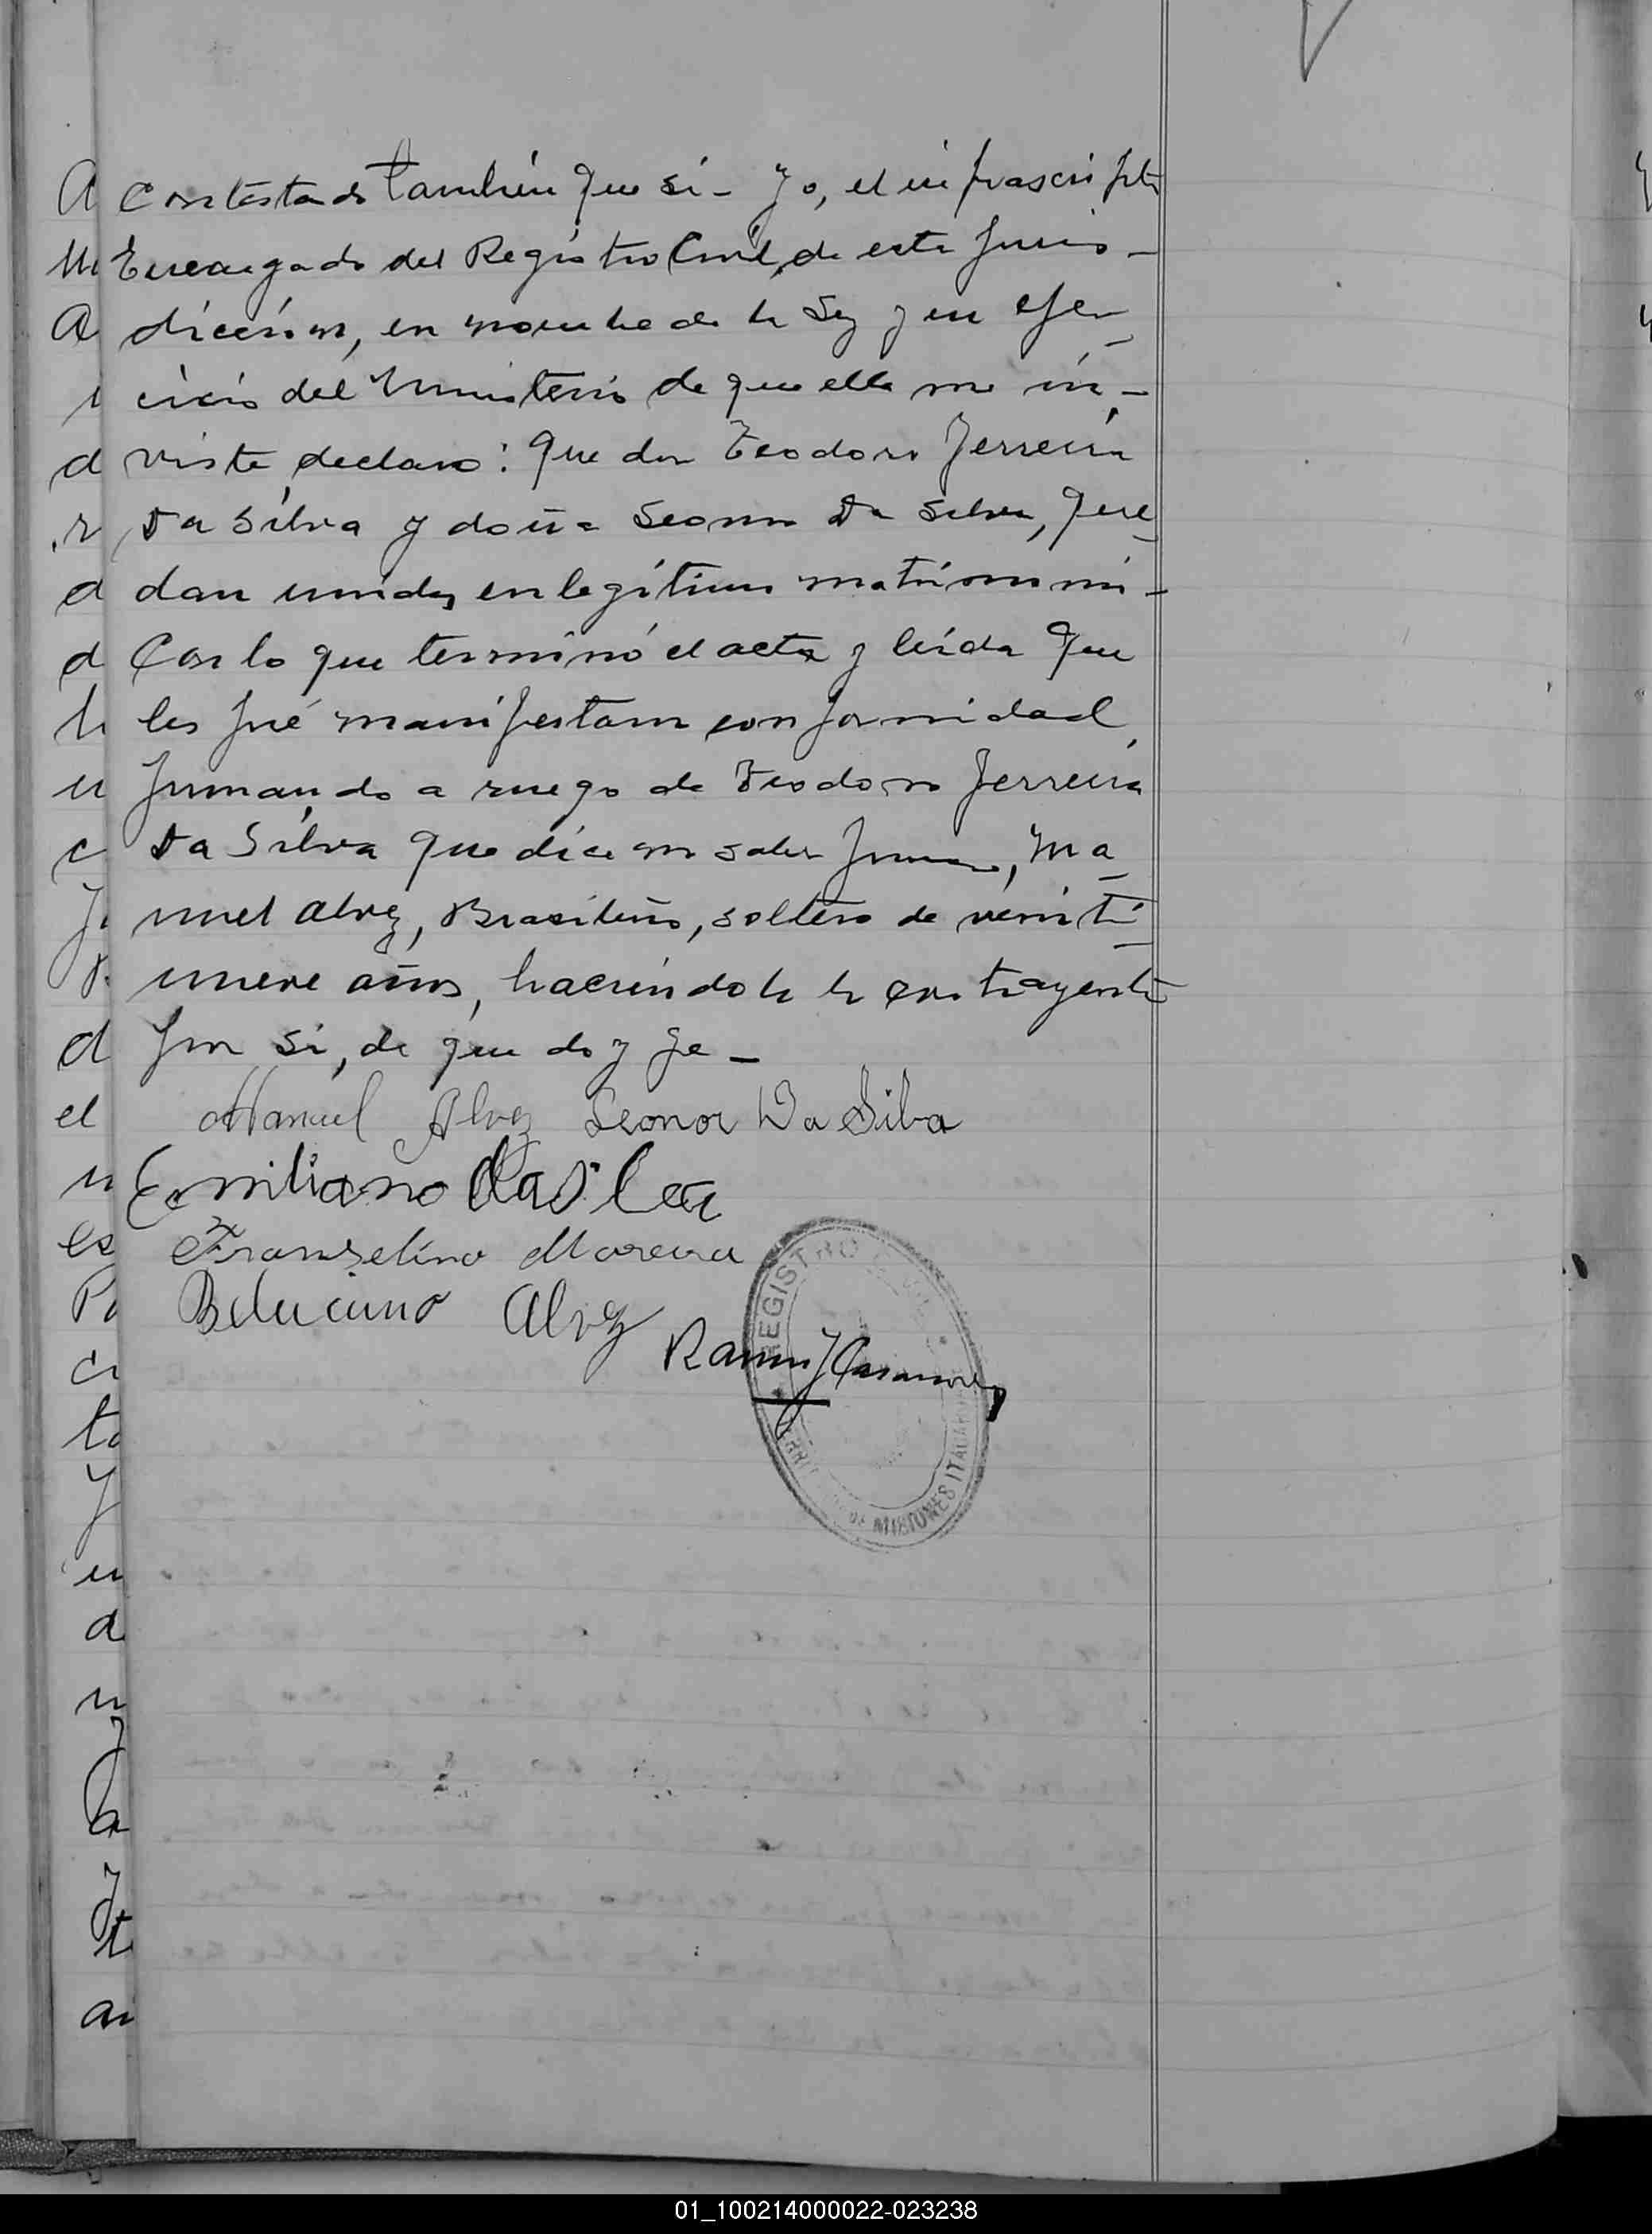 Contestado también que si - Yo, el infrascripto
Encargado del Registro Civil, de esta juris-
dicción, en nombre de la Ley y en ejer-
cicio del Ministerio de que ella me in-
viste, declaro: Que don Teodoro Ferreira
Da Silva y doña Leonor Da Silva, que-
dan unidos en legítimo matrimonio -
Con lo que terminó el acta y leída que
les fué manifestaron conformidad,
firmando a ruego de Teodoro Ferreira
Da Silva que dice no saber firmar, Ma-
nuel Alvez, Brasileño, soltero de veinti-
nueve años, haciéndolo la contrayente
por si, de que doy fe -
Manuel Alvez Leonor Da Silva
Emiliano
Franselino Moreira
Alvez
Ramon J
REGISTRO CIVIL
MISIONES
01_100214000022-023238